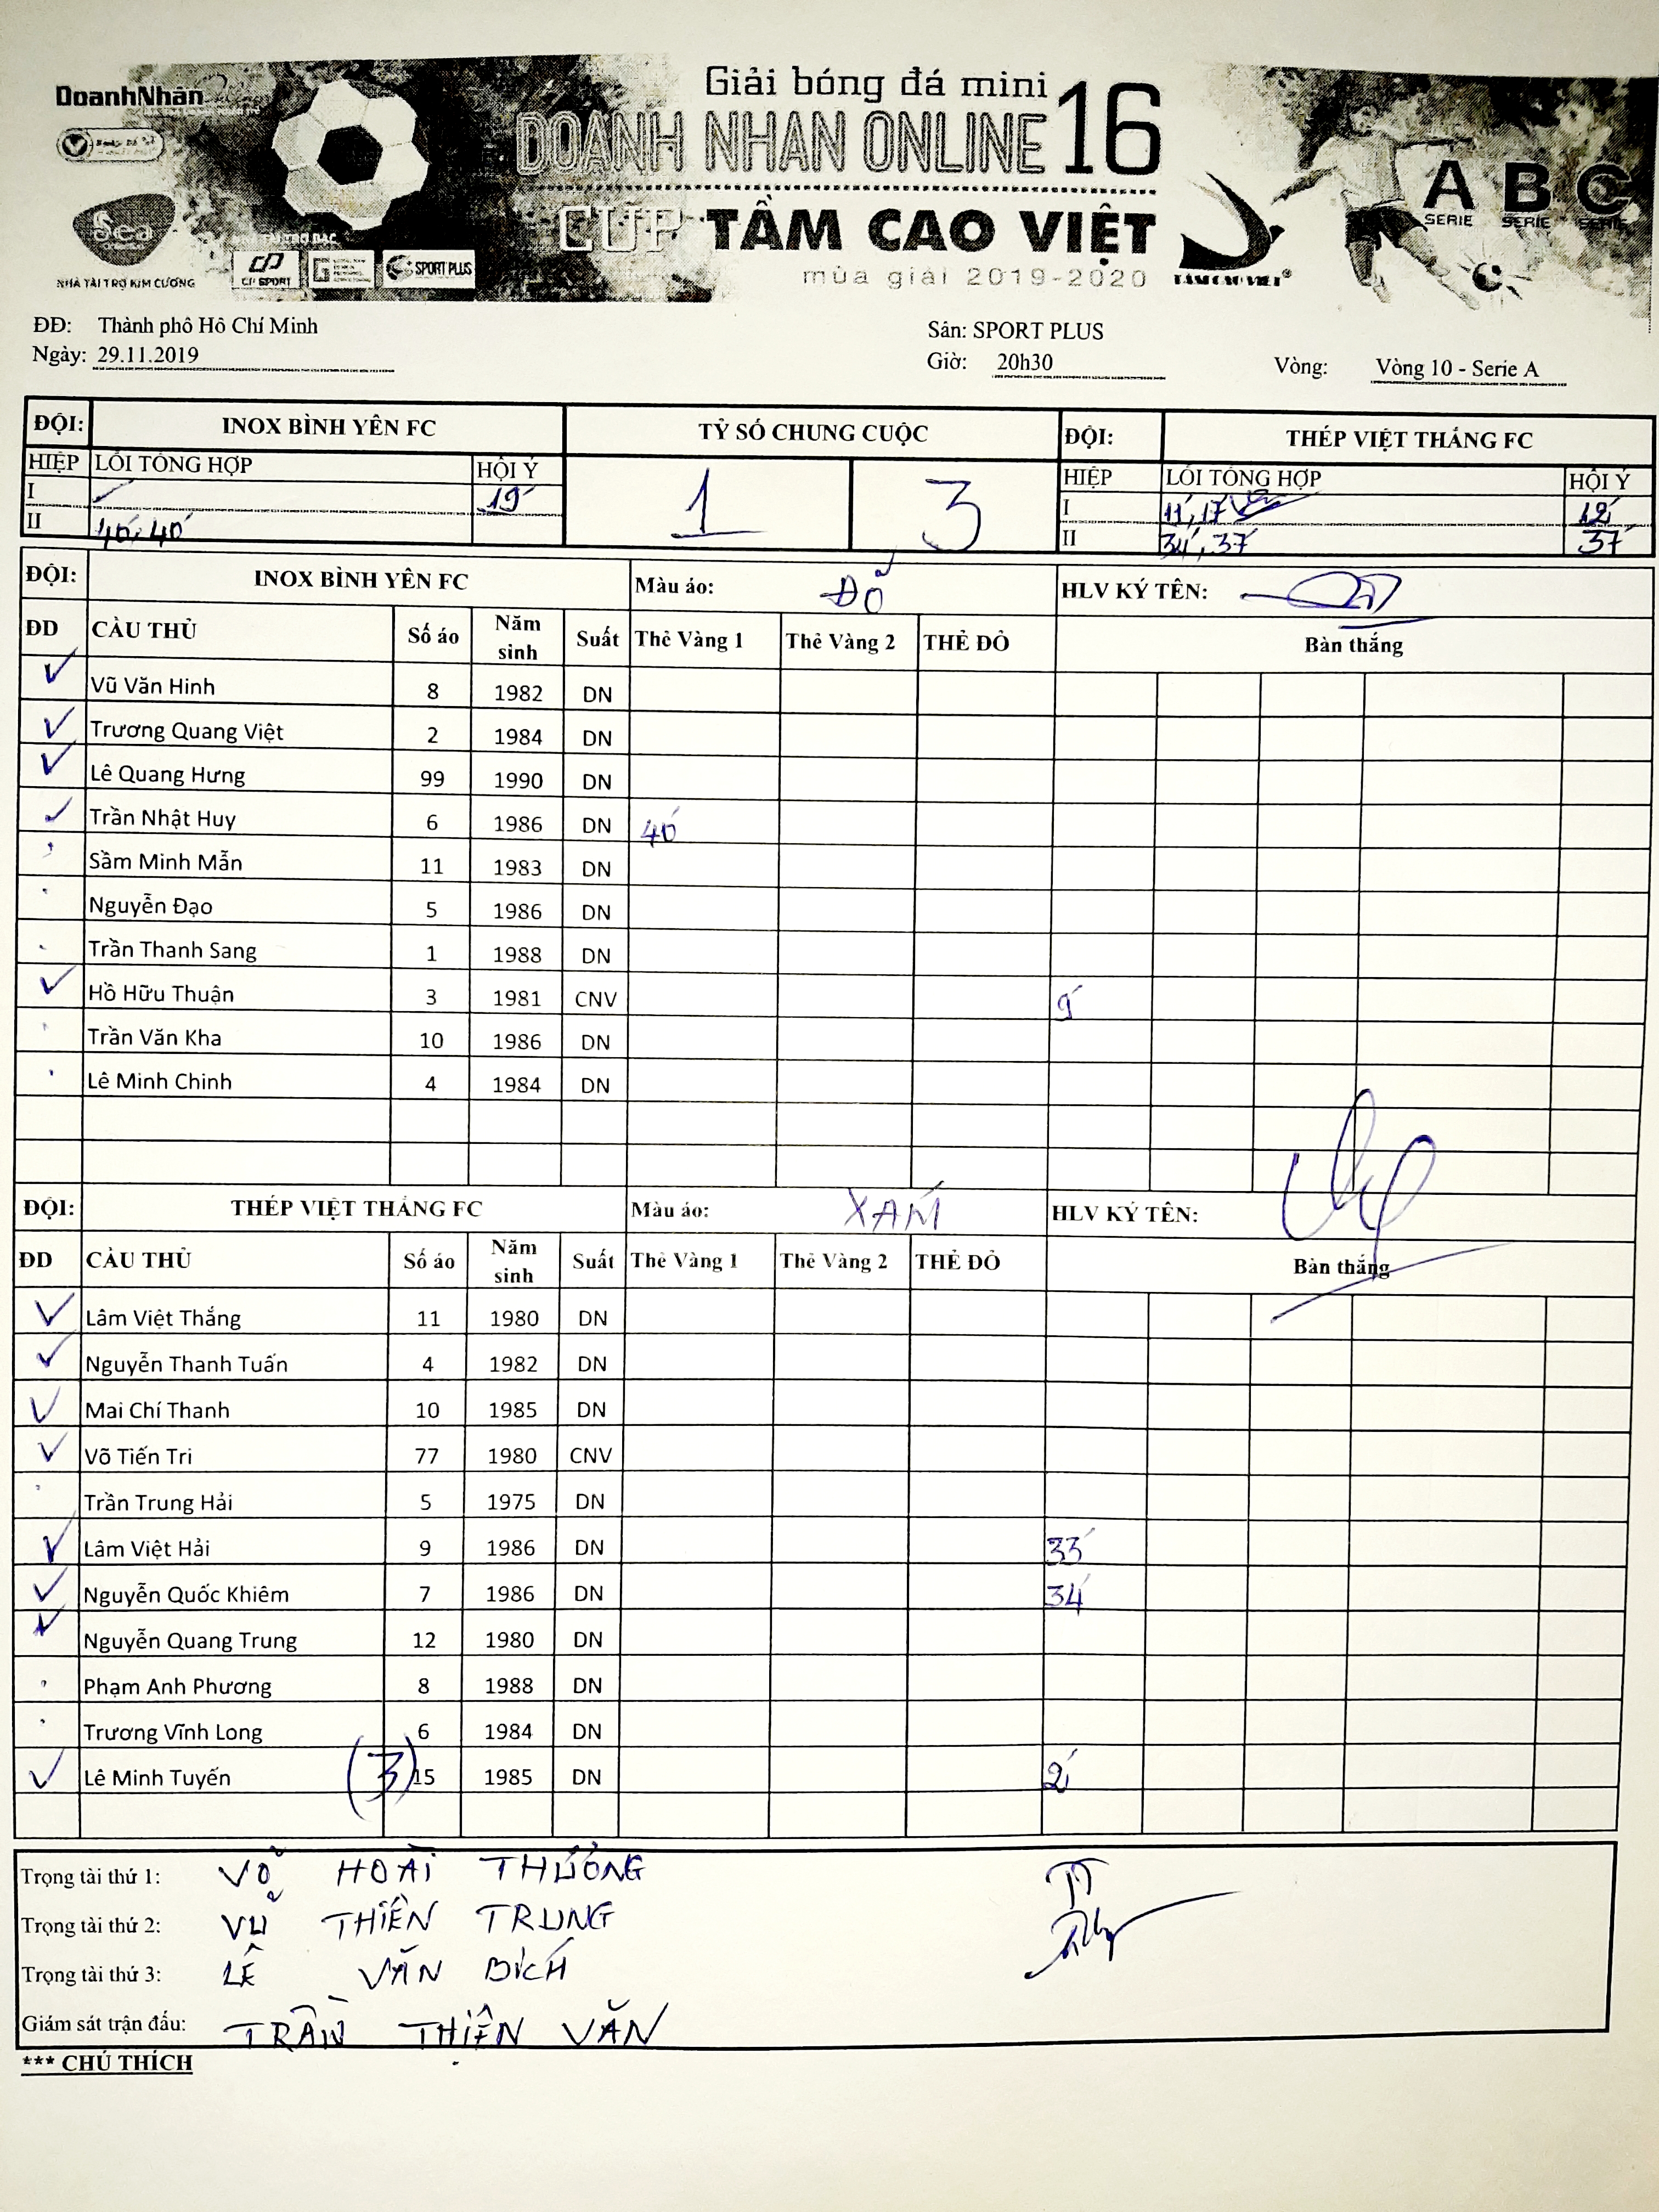 DoanhNhân
Giải bóng đá mini
DOANH NHAN ONLINE 16
CUP TẦM CAO VIỆT
mùa giải 2019-2020
Sea
NHÀ TÀI TRỢ KIM CƯƠNG
CP SPORT
SPORT PLUS
TẦM CAO VIỆT®
A SERIE B SERIE C SERIE
ĐĐ: Thành phô Hô Chí Minh Sân: SPORT PLUS
Ngày: 29.11.2019 Giờ: 20h30 Vòng: Vòng 10 - Serie A
ĐỘI: INOX BÌNH YÊN FC TỶ SỐ CHUNG CUỘC ĐỘI: THÉP VIỆT THẮNG FC
HIỆP LỖI TỔNG HỢP HỘI Ý 1 3 HIỆP LỖI TỔNG HỢP HỘI Ý
I 19' I 11', 17' 12'
II 40', 40' II 34', 37' 37'
ĐỘI: INOX BÌNH YÊN FC Màu áo: ĐỎ HLV KÝ TÊN:
ĐD CẦU THỦ Số áo Năm sinh Suất Thẻ Vàng 1 Thẻ Vàng 2 THẺ ĐỎ Bàn thắng
Vũ Văn Hinh 8 1982 DN
Trương Quang Việt 2 1984 DN
Lê Quang Hưng 99 1990 DN
Trần Nhật Huy 6 1986 DN 40'
Sầm Minh Mẫn 11 1983 DN
Nguyễn Đạo 5 1986 DN
Trần Thanh Sang 1 1988 DN
Hồ Hữu Thuận 3 1981 CNV 9'
Trần Văn Kha 10 1986 DN
Lê Minh Chinh 4 1984 DN
ĐỘI: THÉP VIỆT THẮNG FC Màu áo: XÁM HLV KÝ TÊN:
ĐD CẦU THỦ Số áo Năm sinh Suất Thẻ Vàng 1 Thẻ Vàng 2 THẺ ĐỎ Bàn thắng
Lâm Việt Thắng 11 1980 DN
Nguyễn Thanh Tuấn 4 1982 DN
Mai Chí Thanh 10 1985 DN
Võ Tiến Tri 77 1980 CNV
Trần Trung Hải 5 1975 DN
Lâm Việt Hải 9 1986 DN 33'
Nguyễn Quốc Khiêm 7 1986 DN 34'
Nguyễn Quang Trung 12 1980 DN
Phạm Anh Phương 8 1988 DN
Trương Vĩnh Long 6 1984 DN
Lê Minh Tuyến (3) 15 1985 DN 2'
Trọng tài thứ 1: VÕ HOÀI THƯƠNG
Trọng tài thứ 2: VŨ THIÊN TRUNG
Trọng tài thứ 3: LÊ VĂN BÍCH
Giám sát trận đấu: TRẦN THIỆN VĂN
*** CHÚ THÍCH